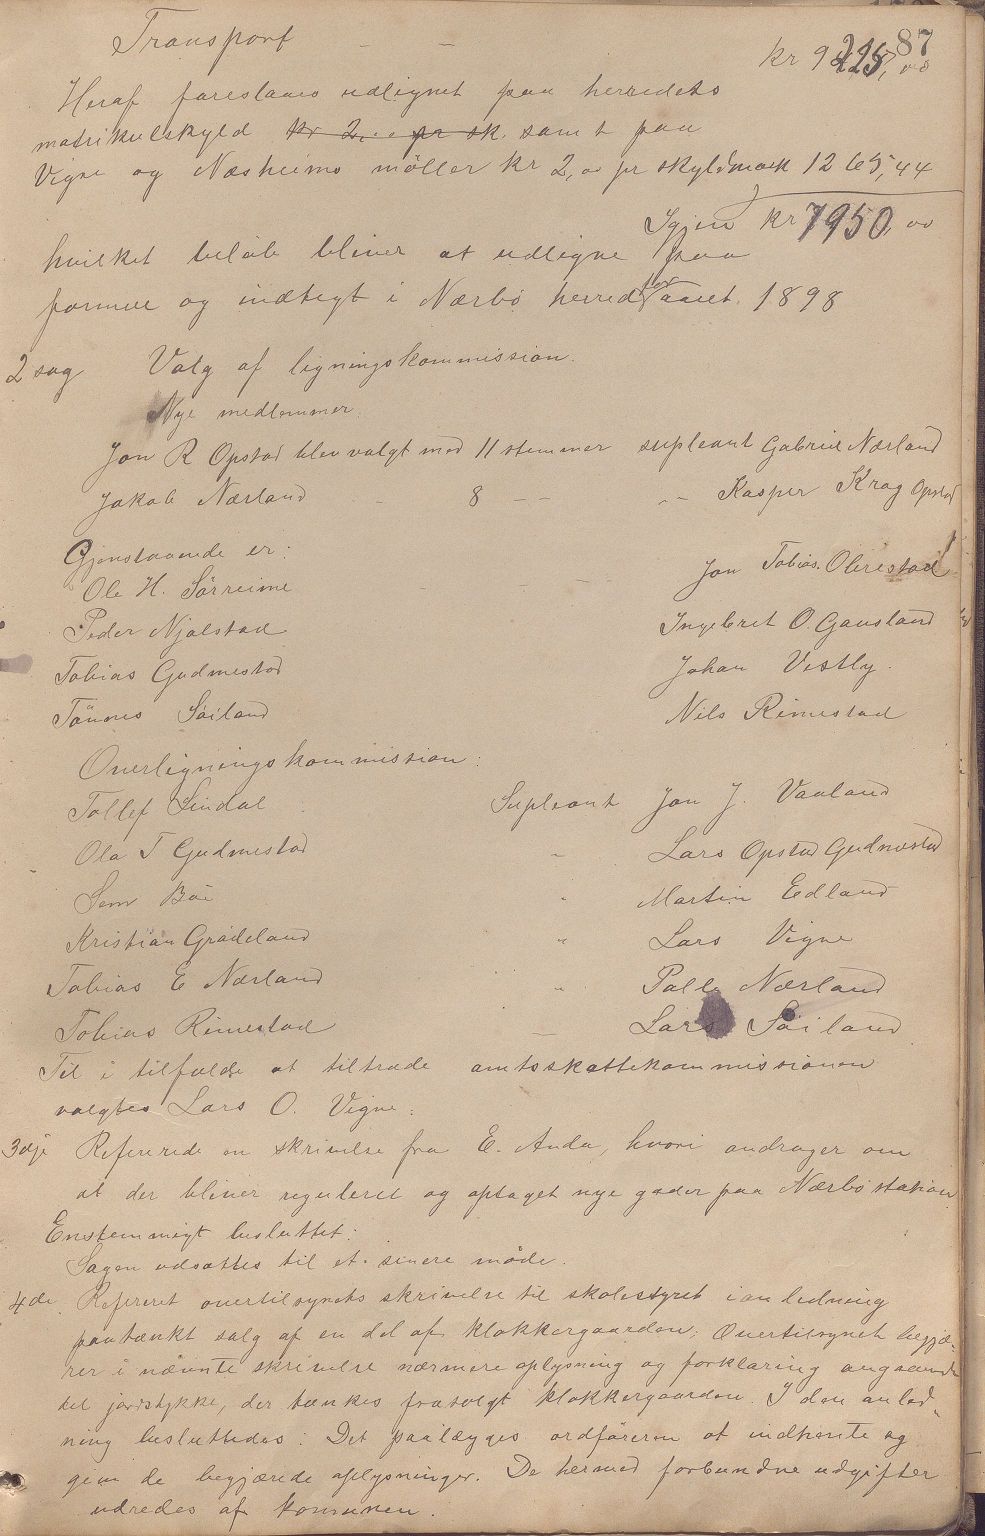 87
Transport - - kr 9215,00
Heraf foreslaaes udlignet paa herredets
matrikulskyld kr 2,00 pr sk. samt paa
Vigre og Næsheims möller kr 2,00 pr skyldmark 1265,44
Igjen kr 7950,00
hvilket belöb bliver at udligne paa
formue og indtegt i Nærbö herred for aaret 1898
2 sag Valg af ligningskommission.
Nye medlemmer.
Jon R Opstad blev valgt med 11 stemmer supleant Gabriel Nærland
Jakob Nærland - 8 - - - - Kasper Krag Opstad
Gjenstaaende er:
Ole H. Sörreime - - Jon Tobias. Obrestad
Peder Njølstad Ingebret O. Gausland
Tobias Gudmestad Johan Vestly.
Tönnes Söiland Nils Rimestad
Overligningskommission:
Tollef Sindal Supleant Jon J. Vaaland
Ola T Gudmestad - Lars Opstad Gudmestad
Sem Böe " Martin Edland
Kristian Grødeland " Lars Vigre
Tobias E Nærland " Palle Nærland
Tobias Rimestad - Lars Söiland
Til i tilfælde at tiltræde amtsskattekommissionen
valgtes Lars O. Vigre.
3dje Refererede en skrivelse fra E. Anda, hvori andrager om
at der bliver reguleret og optaget nye gader paa Nærbö station
Enstemmigt besluttet:
Sagen udsættes til et senere möde.
4de Refereret overtilsynets skrivelse til skolestyret i anledning
paatænkt salg af en del af klokkergaarden; Overtilsynet begjæ-
rer i nævnte skrivelse nærmere oplysning og forklaring angaaende
det jordstykke, der tænkes frasolgt klokkergaarden. I den anled-
ning besluttedes: Det paalægges ordföreren at indhente og
give de begjærede oplysninger. De hermed forbundne udgifter
udredes af kommunen.